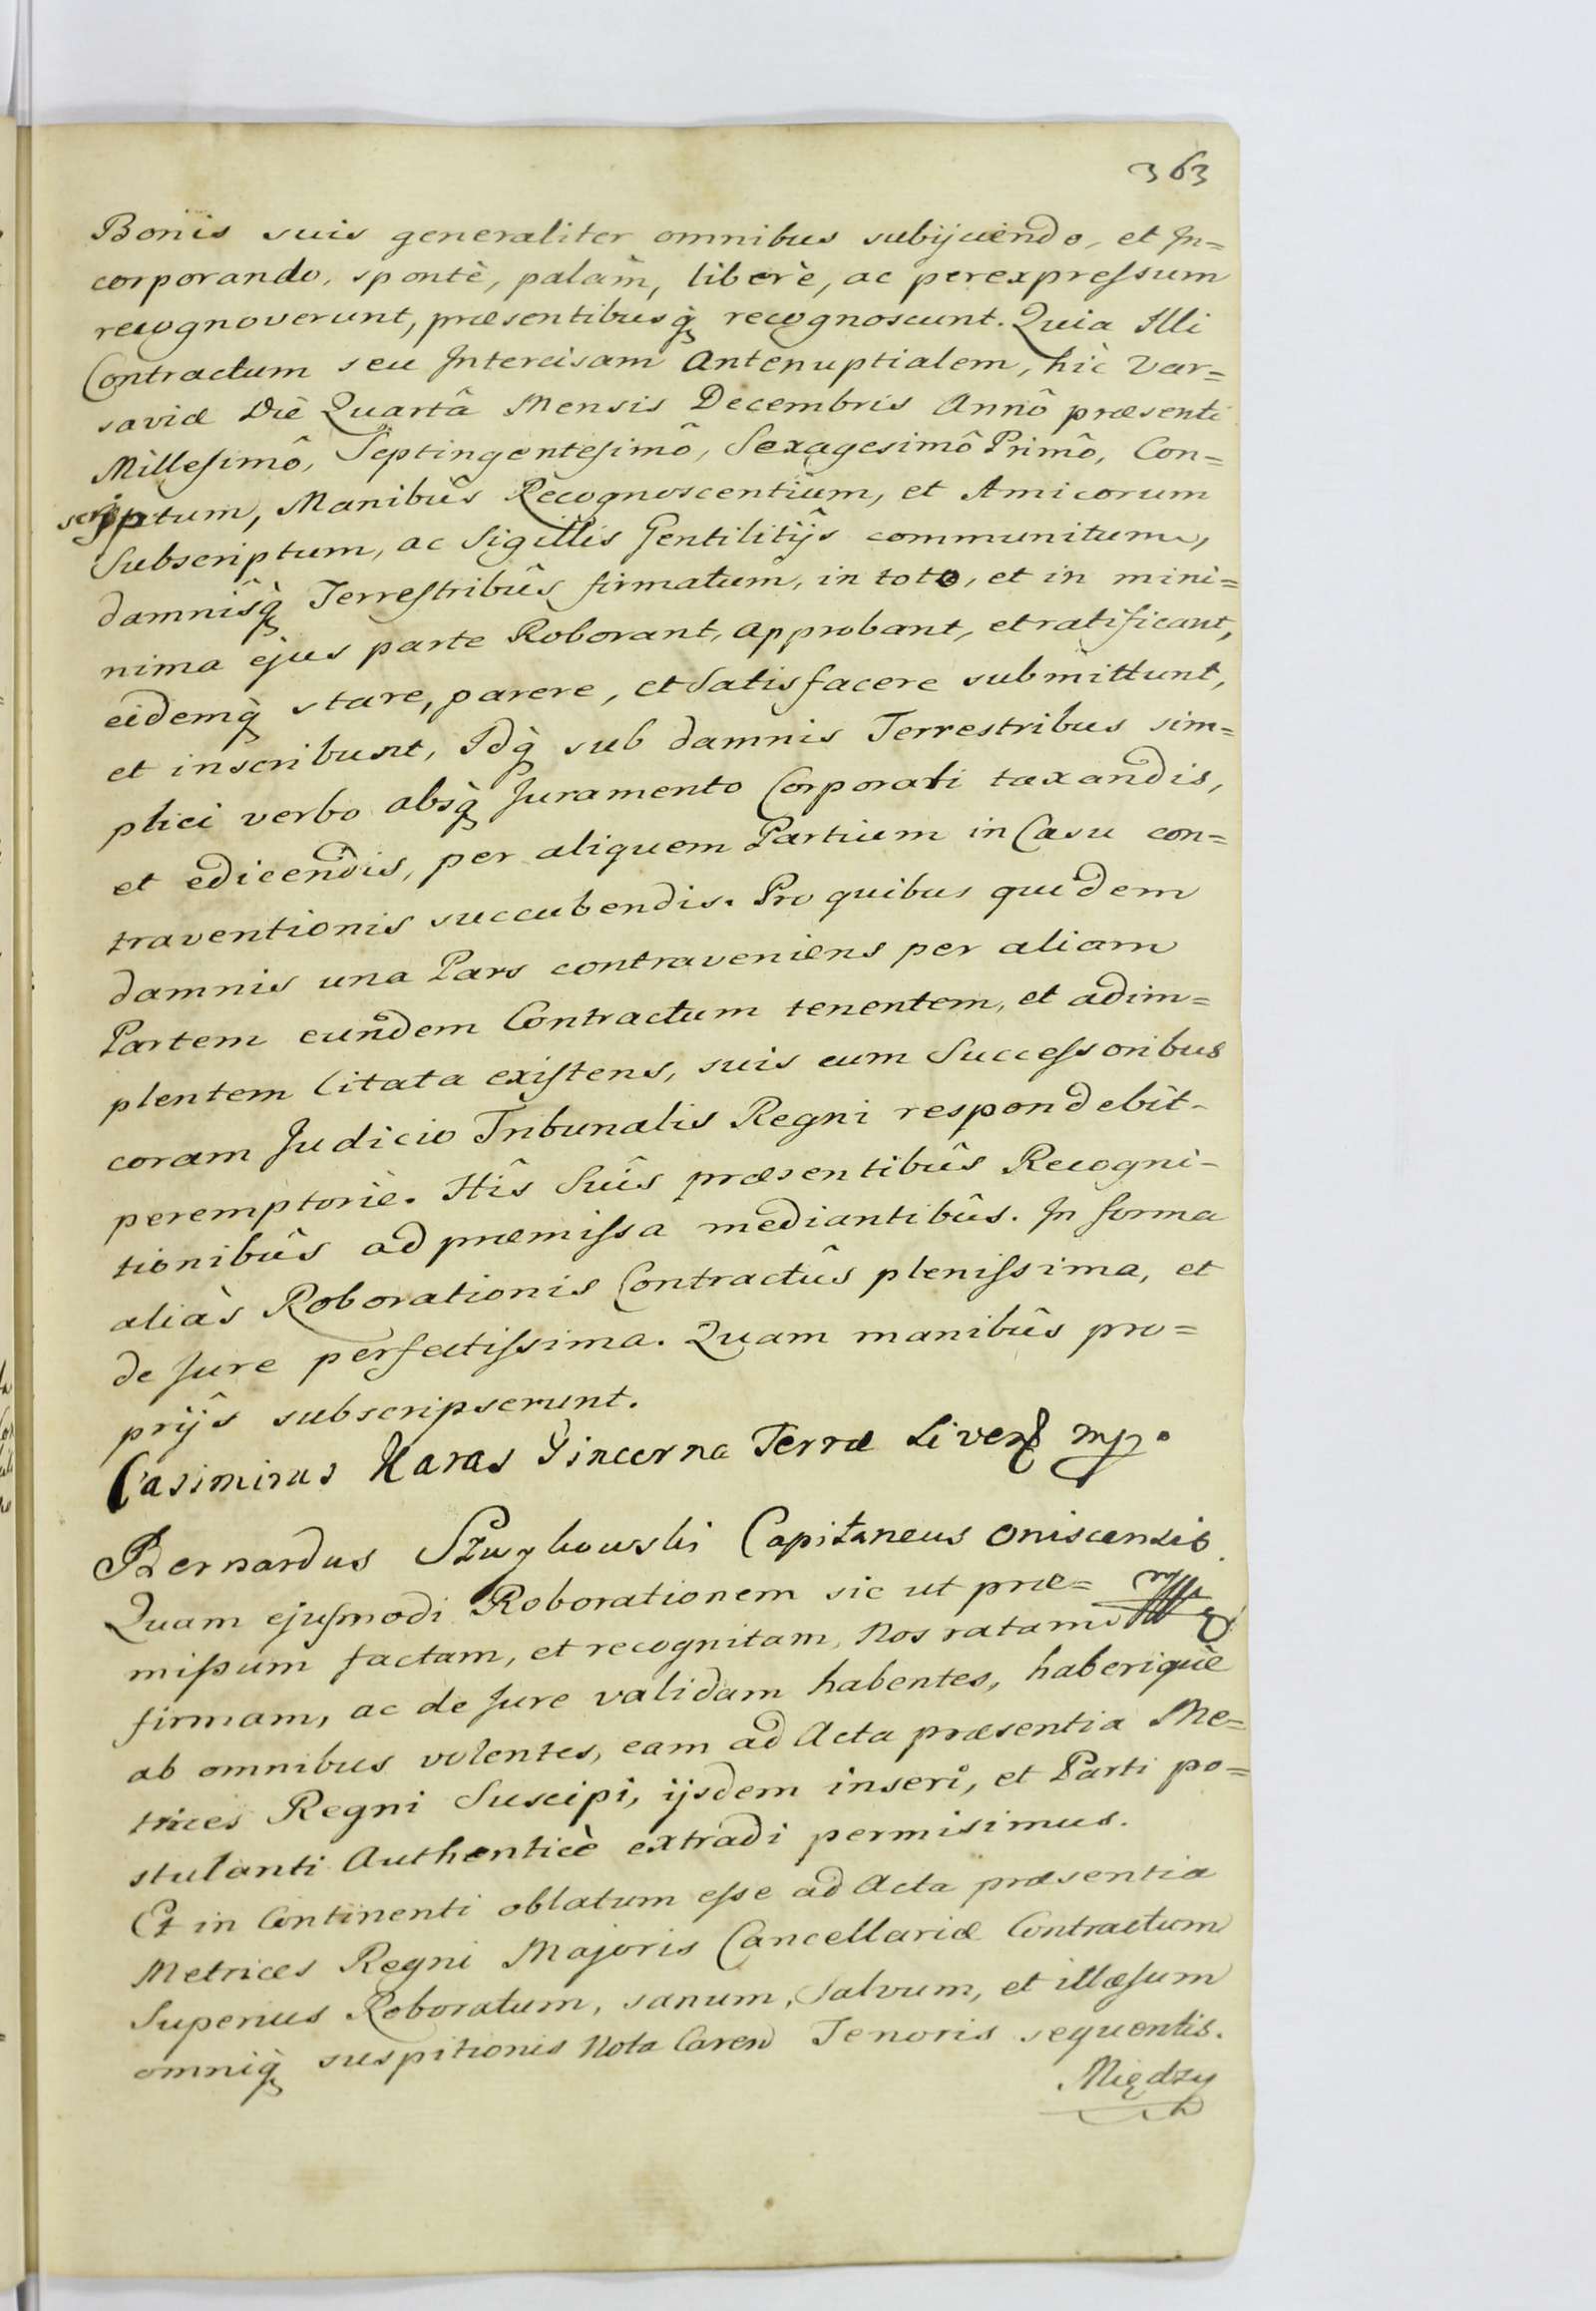 363
Bonis suis generaliter omnibus subijciendo, et In=
corporando, spontè, palàm, liberè, ac per expreſsum
recognoverunt, præsentibusq̀ recognoscunt. Quia Illi
Contractum seu Intercisam Antenuptialem, hic Var=
saviæ Die Quartâ Mensis Decembris Annô præsenti
Milleſimô, Septingenteſimô, Sexagesimô Primô, Con=
scriptum, Manibûs Recognoscentium, et Amicorum
Subscriptum, ac Sigillis Gentilitijs communitum,
damnîsq̀ Terreſtribûs firmatum, in toto, et in mini=
nima ejus parte Roborant, approbant, et ratificant,
eidemq̀ stare, parere, et Satisfacere submittunt,
et inscribunt, Idq̀ sub damnis Terrestribus sim=
plici verbo absq̀ Juramento Corporali taxandis,
et edicendis, per aliquem Partium in Casu con=
traventionis succubendis. Pro quibus quidem
damnis una Pars contraveniens per aliam
Partem eundem Contractum tenentem, et adim=
plentem Citata exiſtens, suis cum Succeſsoribus
coram Judicio Tribunalis Regni respondebit
peremptoriè. Hîs Suîs præsentibûs Recogni-
tionibûs ad præmiſsa mediantibûs. In forma
aliàs Roborationis Contractûs pleniſsima, et
de Jure perfectiſsima. Quam manibûs pro=
prijs subscripserunt.
Casimirus Karas Pincerna Terræ Livens mp.
Bernardus Szuykowski Capitaneus Oniscensis
Quam ejuſmodi Roborationem sic ut præ= mp
miſsum factam, et recognitam, Nos ratam
firmam, ac de Jure validam habentes, haberique
ab omnibus volentes, eam ad Acta præsentia Me=
trices Regni Suscipi, ijsdem inseri, et Parti po=
stulanti Authenticè extradi permisimus.
Et in Continenti oblatum eſse ad Acta præsentia
Metrices Regni Majoris Cancellariæ Contractum
Superius Roboratum, sanum, Salvum, et illæſum
omniq̀ suspitionis Nota Caren Tenoris sequentis.
Między